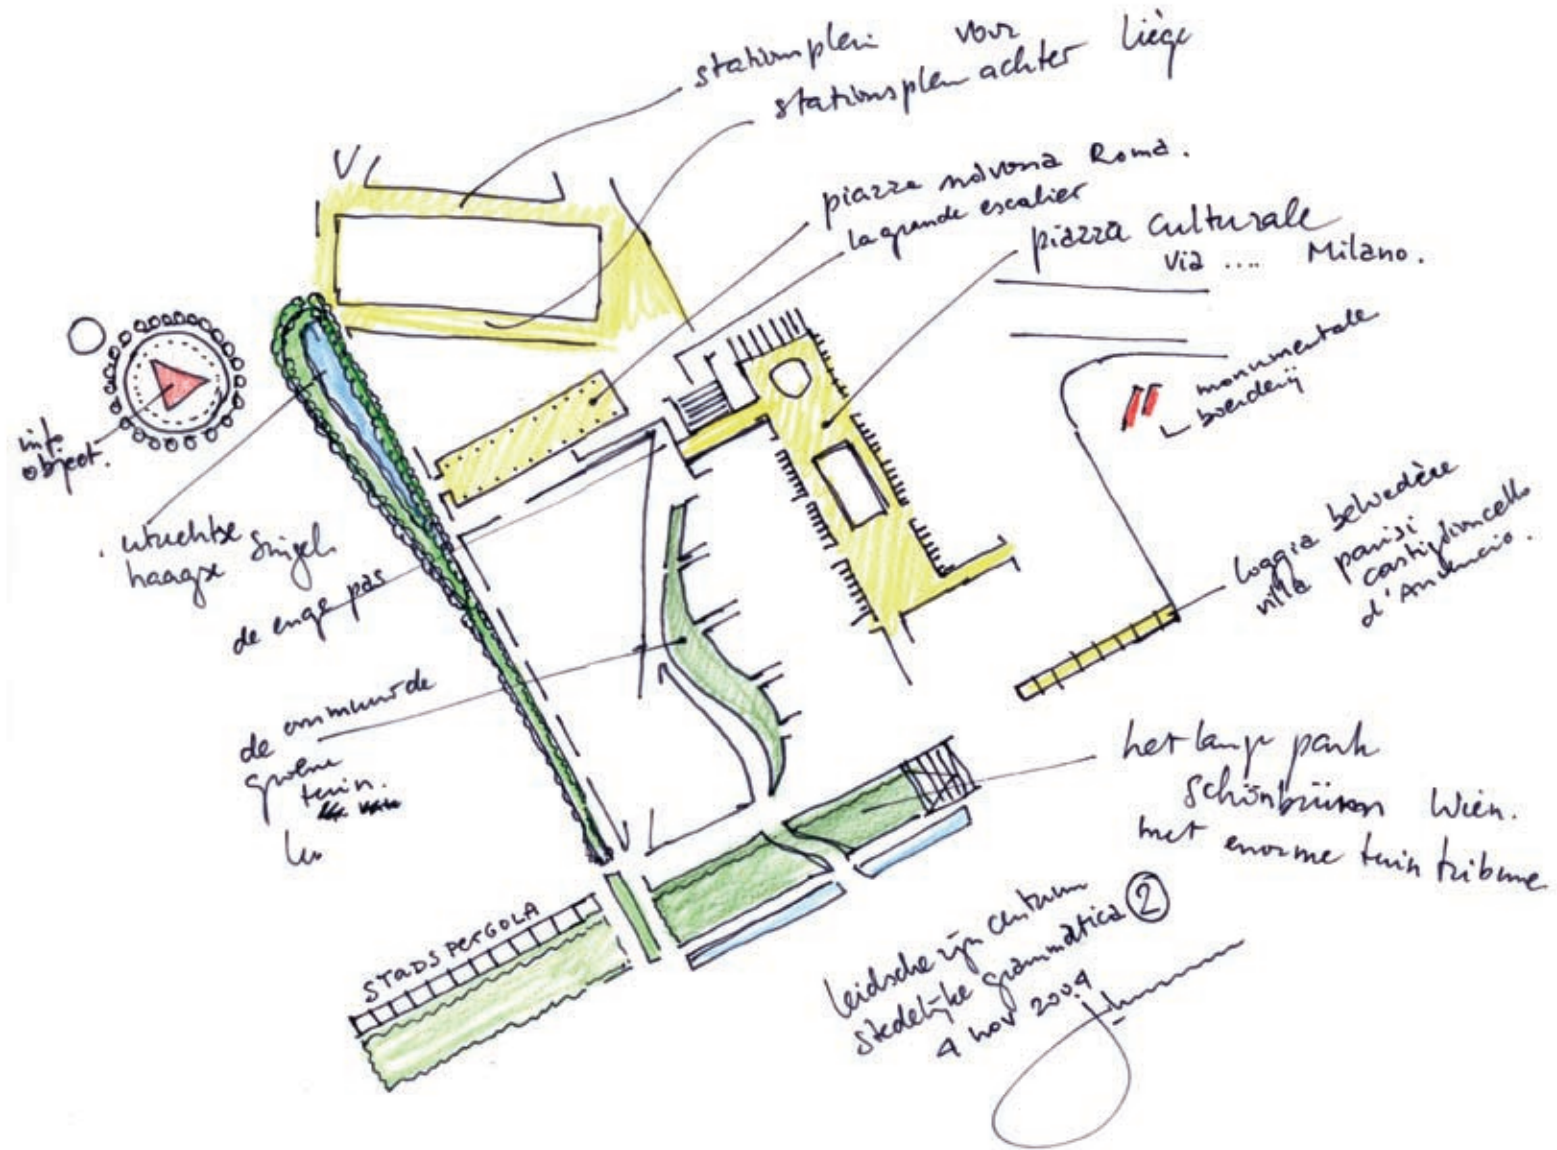 stationsplein voor
stationsplein achter Liège
piazza navona Roma.
la grande escalier
piazza culturale
via .... Milano.
monumentale
boerderij
info
object.
utrechtse
haagse Singel
de enge pas
loggia belvedère
villa parisi
castiglioncello
d'Annuncio.
de ommuurde
groene
tuin.
het lange park
Schönbrünnn Wien.
met enorme tuin tribune
STADSPERGOLA
leidsche rijn centrum
stedelijke grammatica 2
4 nov 2004